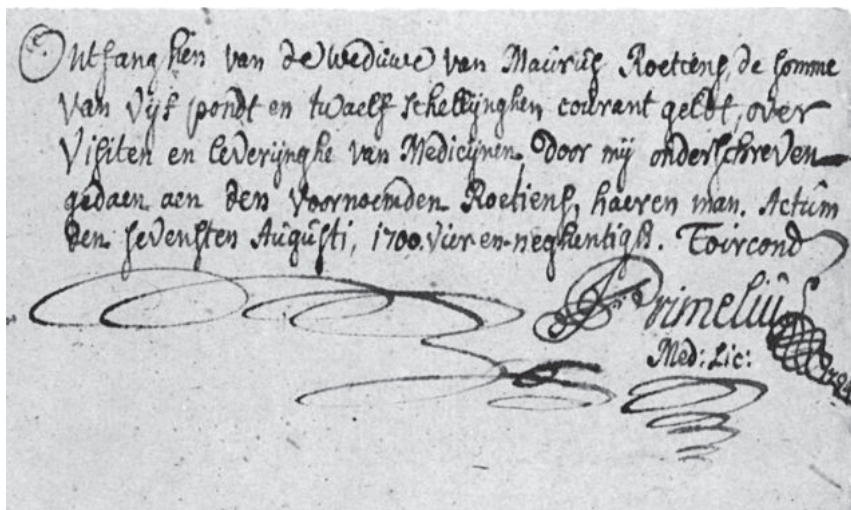 Ontfanghen van de weduwe van Maurus Roetiens, de somme
van vijf pondt en twaelf schellijnghen courant geldt, over
visiten en leverijnghe van Medicijnen Door mij onderschreven
gedaen aen den voornoemden Roetiens, haeren man. Actum
den sevensten Augusti, 1700. vier-en-neghentigh. Toircond
Primelius
Med: Lic:
1794